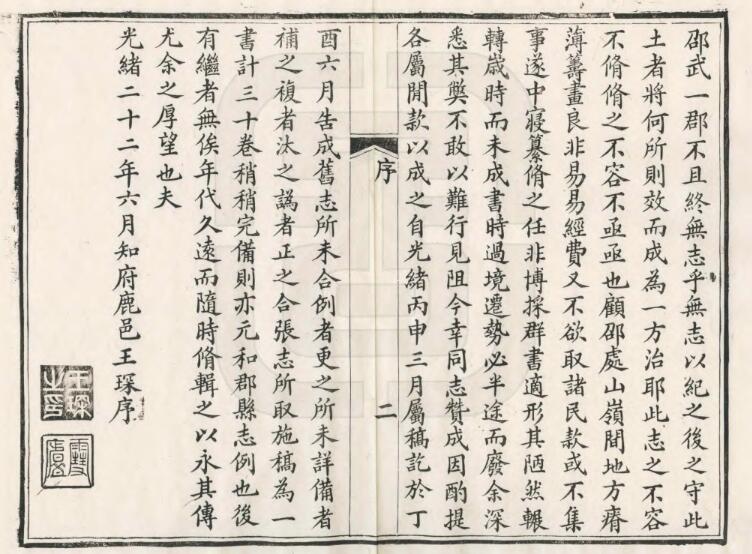 邵武一郡不且終無志乎無志以紀之後之守此
土者將何所則效而成為一方治耶此志之不容
不脩脩之不容不亟亟也顧邵處山嶺間地方瘠
薄籌畫良非易易經費又不欲取諸民款或不集
事遂中寢纂脩之任非博採群書適形其陋然輾
轉歲時而未成書時過境遷勢必半途而廢余深
悉其弊不敢以難行見阻今幸同志贊成因酌提
各屬閒款以成之自光緒丙申三月屬稿訖於丁
序
二
酉六月告成舊志所未合例者更之所未詳備者
補之複者汰之譌者正之合張志所取施稿為一
書計三十卷稍稍完備則亦元和郡縣志例也後
有繼者無俟年代久遠而隨時脩輯之以永其傳
尤余之厚望也夫
光緒二十二年六月知府鹿邑王琛序
王琛之印
雪廬